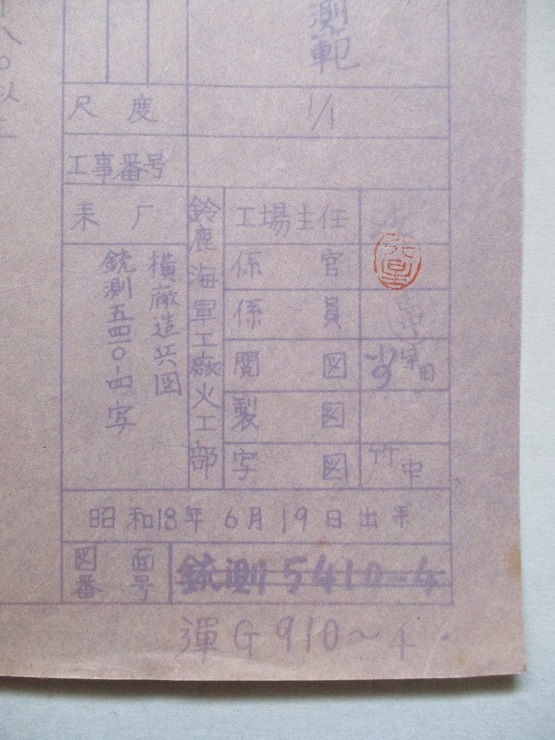 測範
八〇以上
尺度 1/1
工事番号
来厂
横廠造兵図
銃測五四一〇-四写
鈴鹿海軍工廠火工部
工場主任
係官
係員
閲図
製図
写図 竹中
昭和18年6月19日出来
図面番号 銃測5410-4
渾G910~4